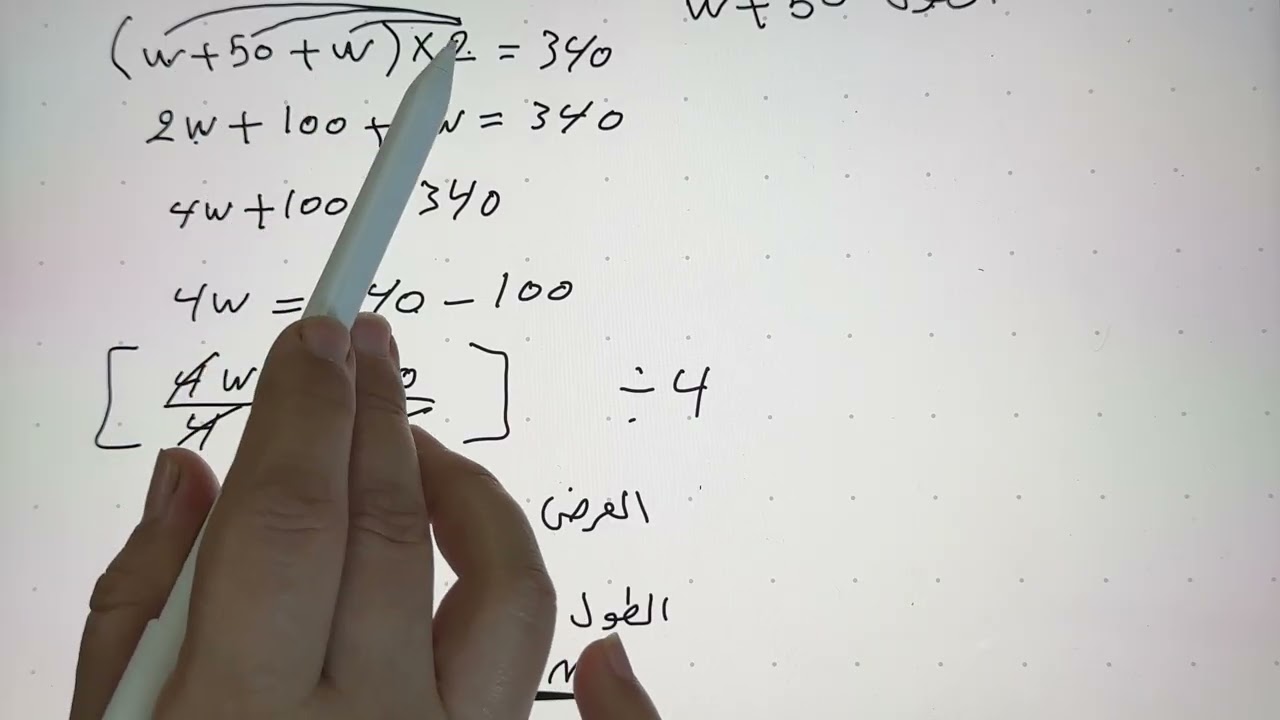 w + 50
(w + 50 + w) × 2 = 340
2w + 100 + w = 340
4w + 100 340
4w = 40 - 100
[ 4w 0 ] ÷ 4
4
العرض
الطول